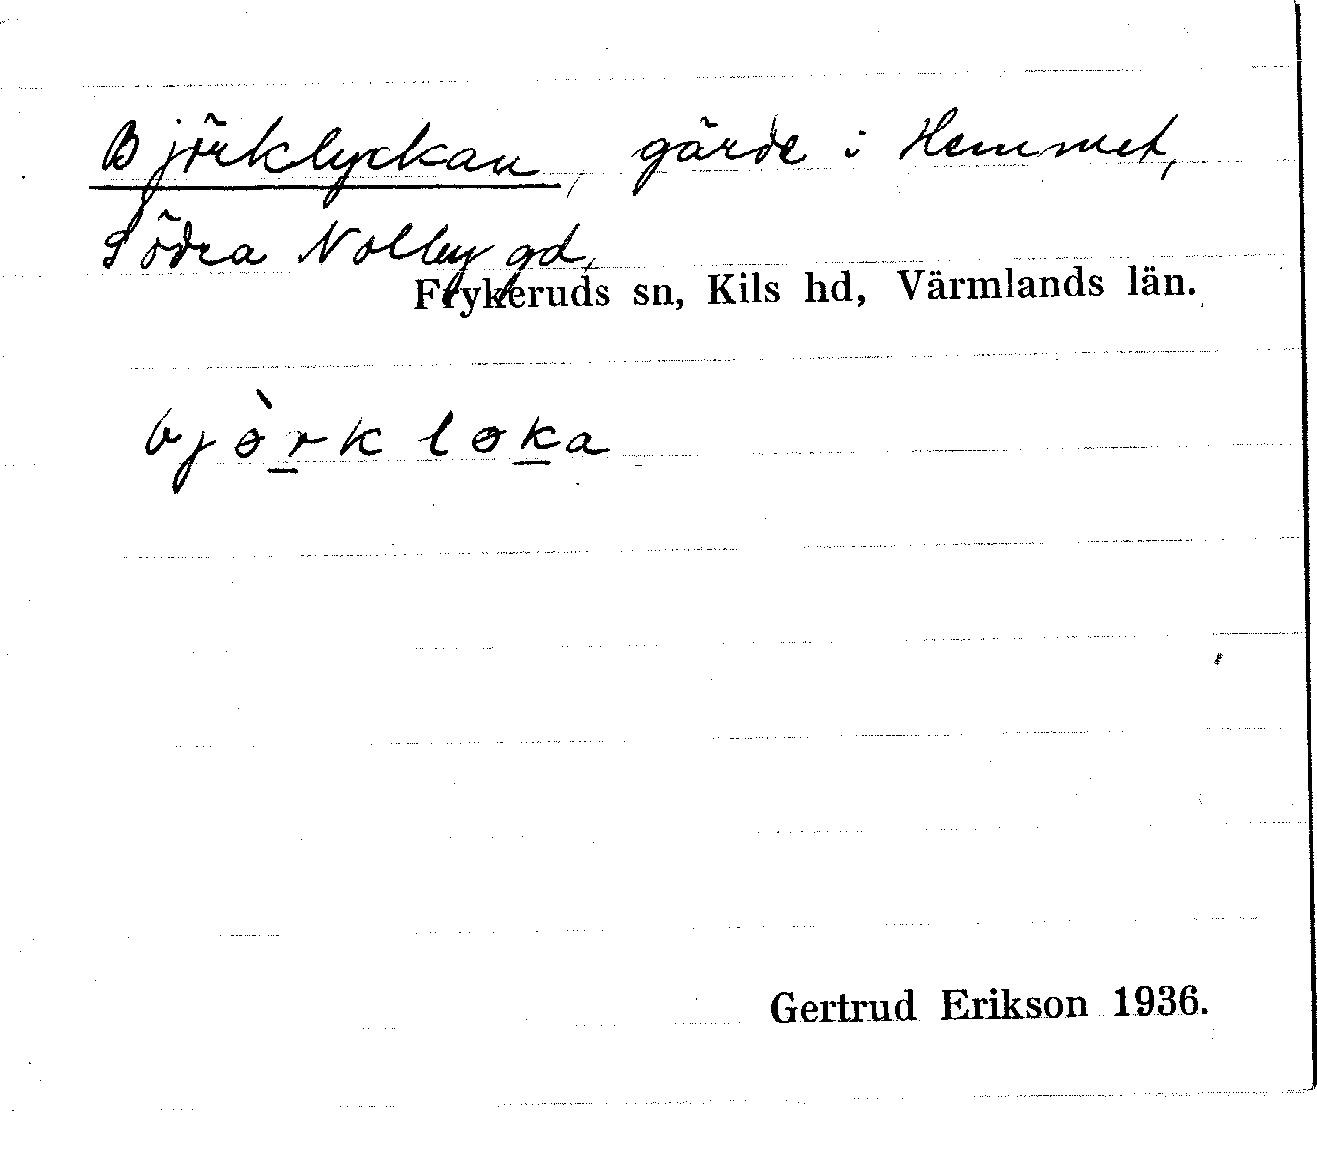 Björklyckan, gärde i Hemmet,
Södra Nolbygd,
Frykeruds sn, Kils hd, Värmlands län.
bjɵ̀r̠k lɵk̠a
Gertrud Erikson 1936.